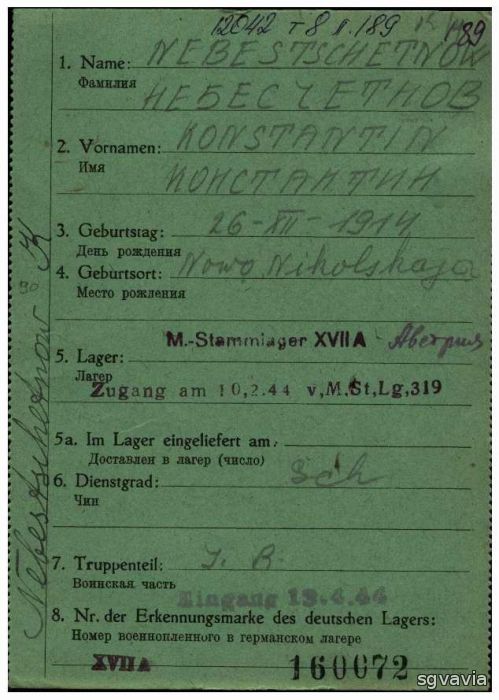 12042 т 8 л.189
189
1. Name: NEBESTSCHETNOW
Фамилия НЕБЕСЧЕТНОВ
2. Vornamen: KONSTANTIN
Имя КОНСТАНТИН
3. Geburtstag: 26-XII-1914
День рождения
4. Geburtsort: Nowo Nikolskaja
Место рождения
M.-Stammlager XVII A Австрия
5. Lager:
Лагерь
Zugang am 10,2.44 v,M.St,Lg,319
5a. Im Lager eingeliefert am:
Доставлен в лагер (число)
6. Dienstgrad: Sch
Чин
7. Truppenteil: J. R.
Воинская часть
Eingang 13.4.44
8. Nr. der Erkennungsmarke des deutschen Lagers:
Номер военнопленного в германском лагере
XVII A 160072
Nebestschetnow K
sgvavia